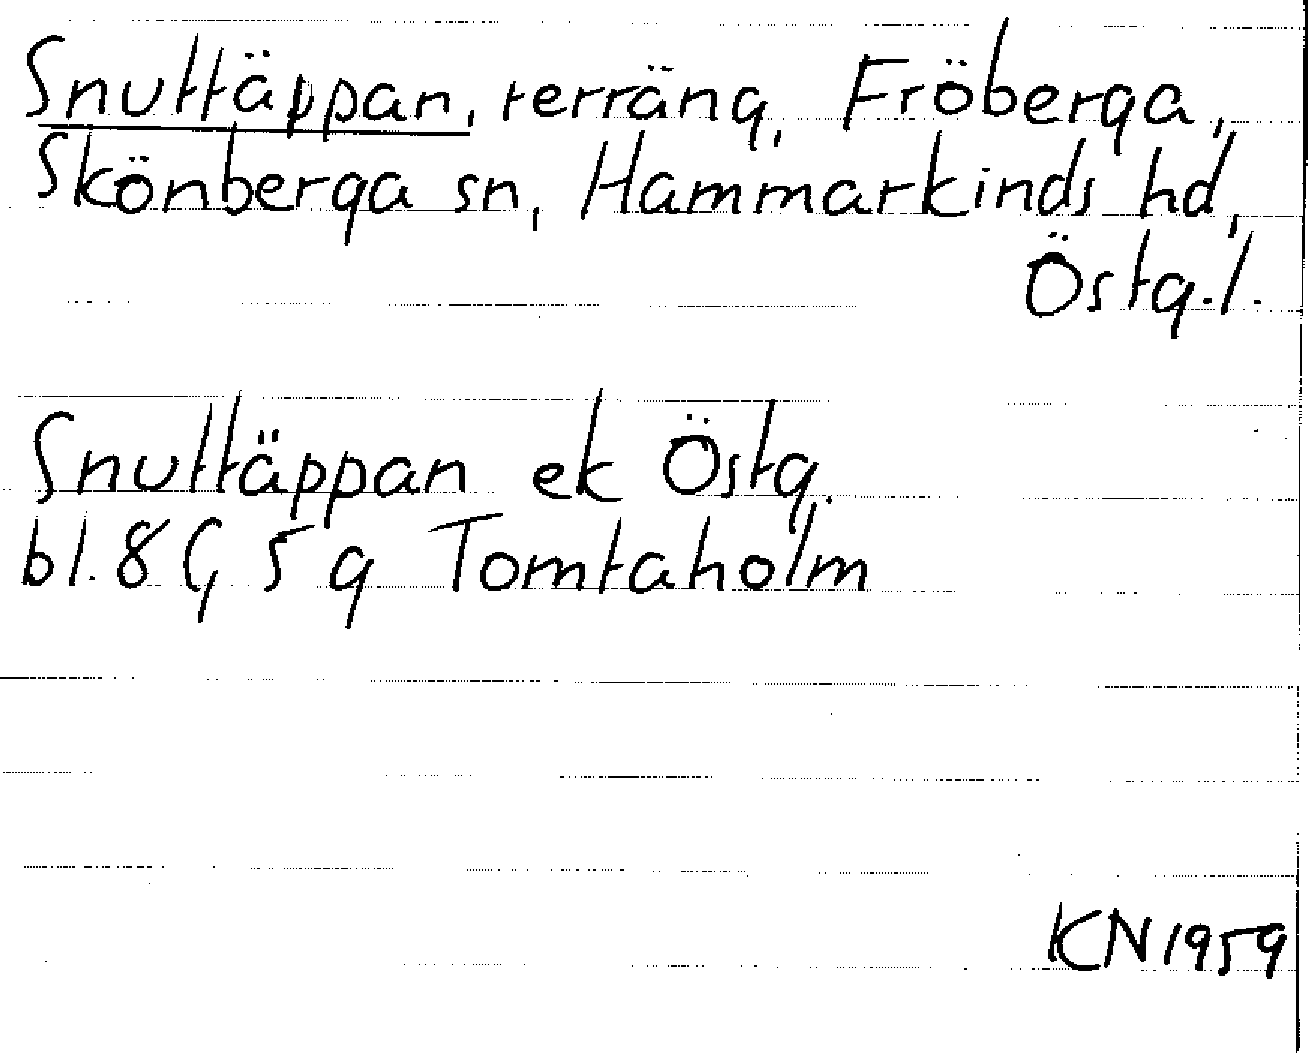 Snuttäppan, terräng, Fröberga,
Skönberga sn, Hammarkinds hd,
Östg.l.
Snuttäppan ek Östg.
bl. 8G, 5 g Tomtaholm
KN 1959